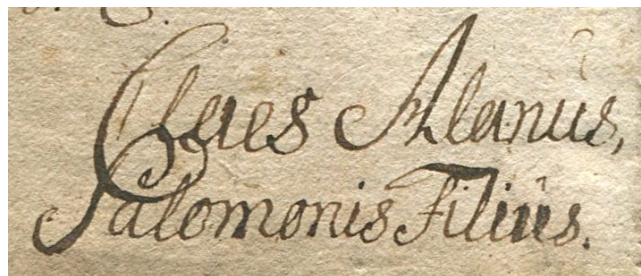 Claes Alanus,
Salomonis Filius.